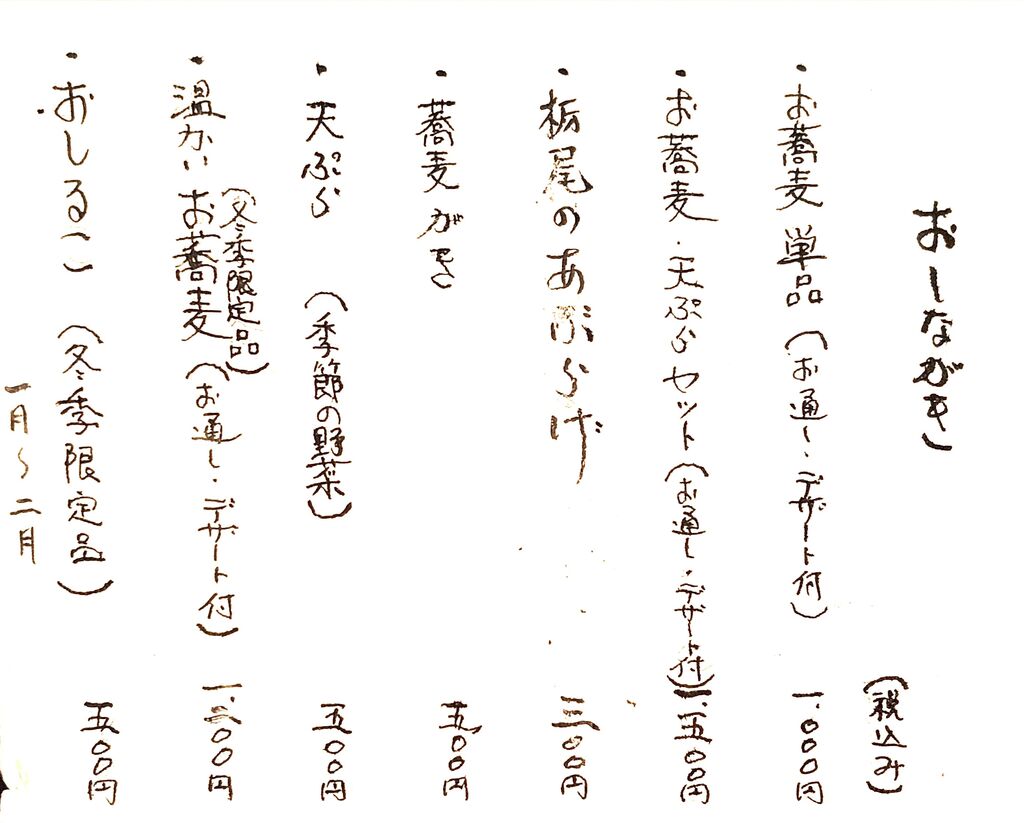 おしながき
(税込み)
・お蕎麦 単品 (お通し・デザート付) 一、〇〇〇円
・お蕎麦・天ぷらセット (お通し・デザート付) 一、五〇〇円
・栃尾のあぶらげ 三〇〇円
・蕎麦がき 五〇〇円
・天ぷら (季節の野菜) 五〇〇円
(冬季限定品)
・温かいお蕎麦 (お通し・デザート付) 一、三〇〇円
・おしるこ (冬季限定品) 五〇〇円
一月〜二月